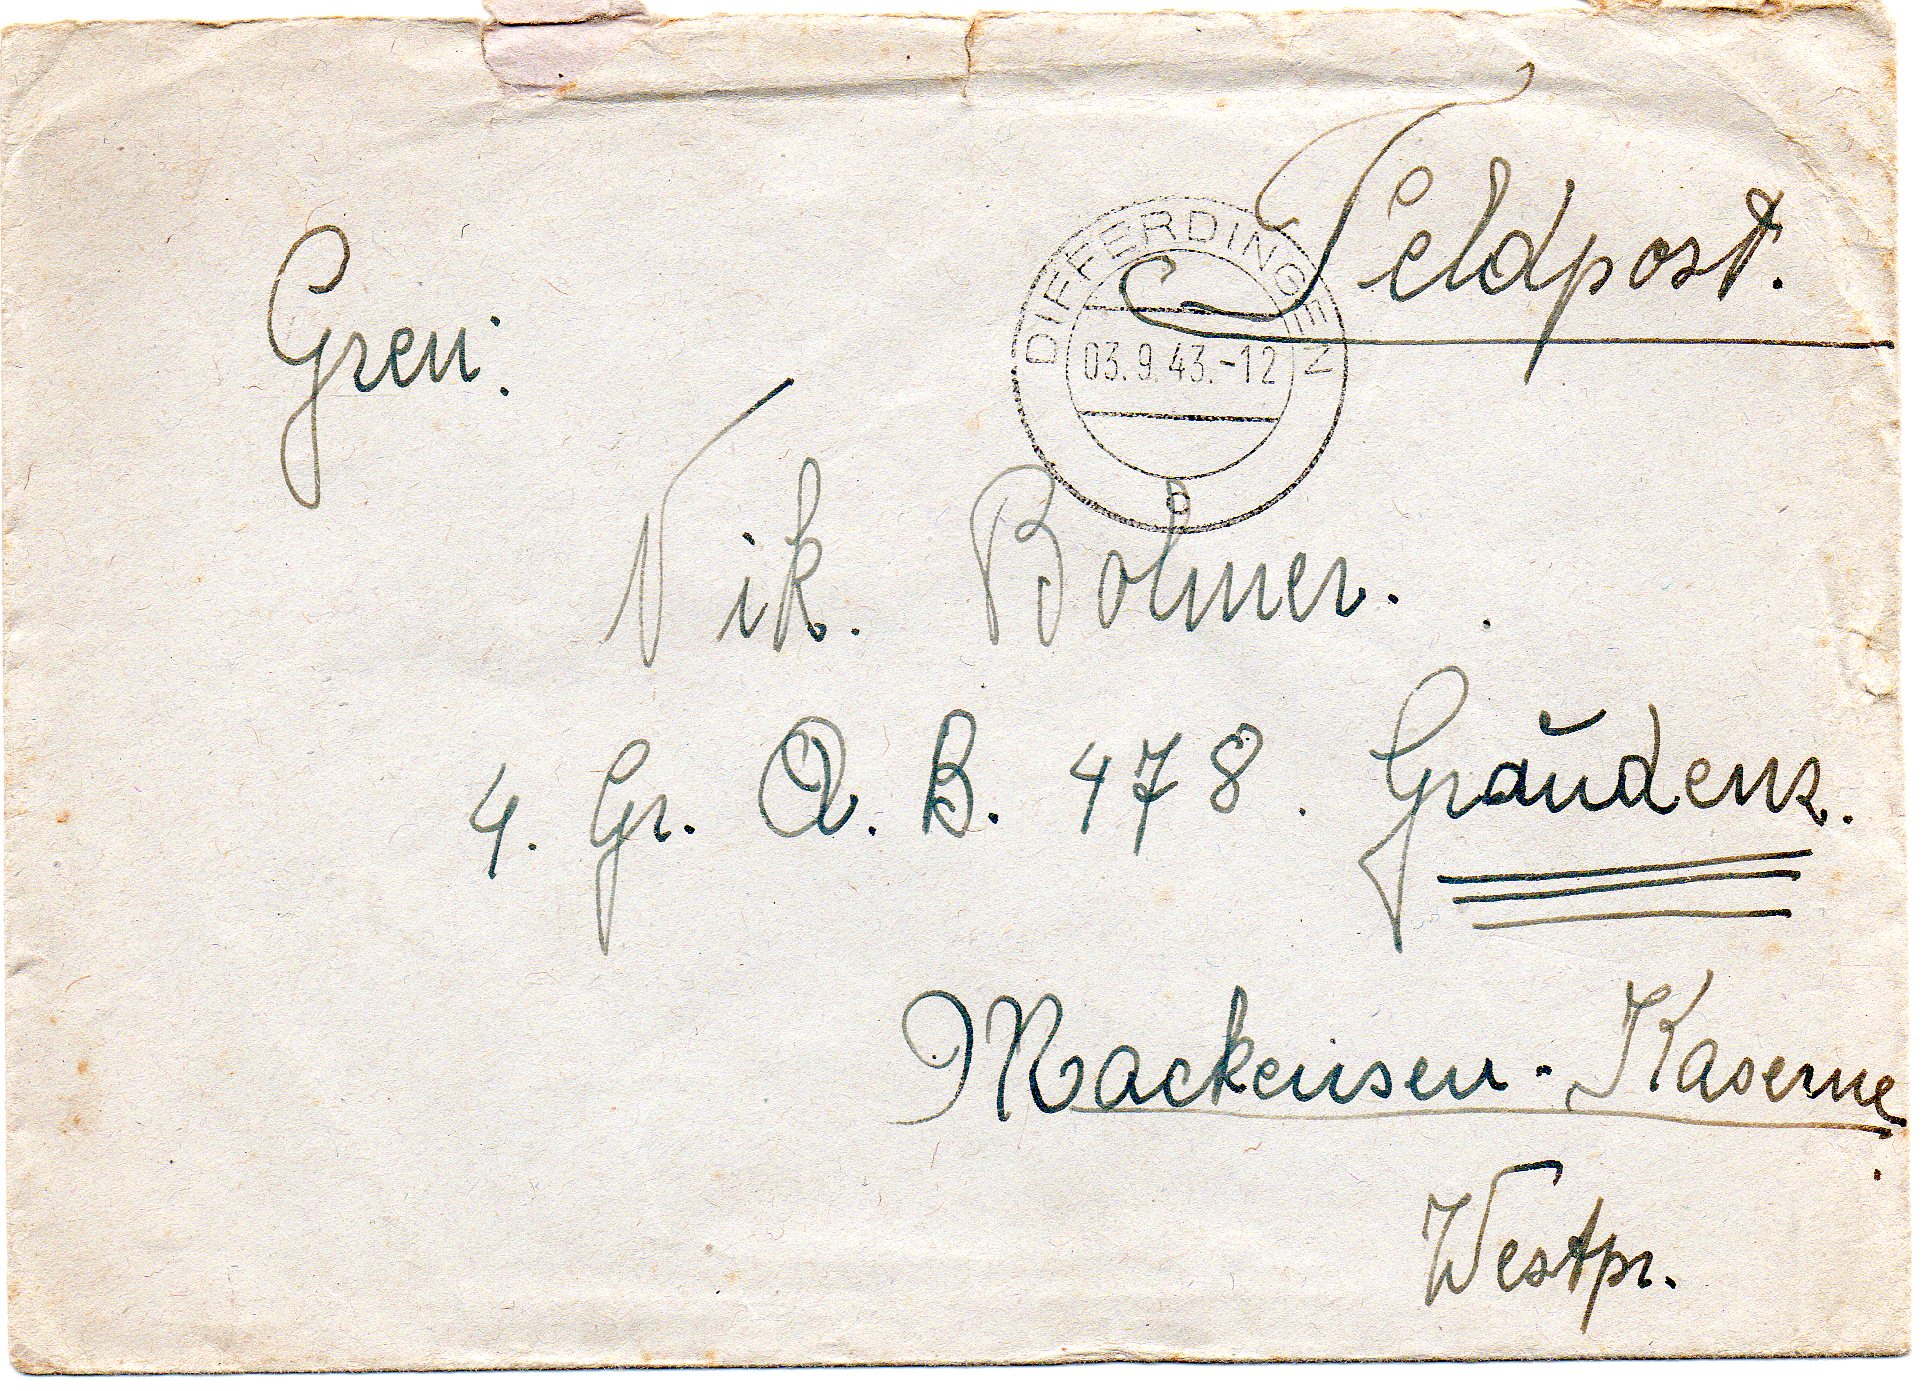 Feldpost.
DIFFERDINGEN
03.9.43.-12
b
Gren:
Nik. Bohmer.
4. Gr. A. B. 478. Graŭdenz.
Mackensen-Kaserne.
Westpr.